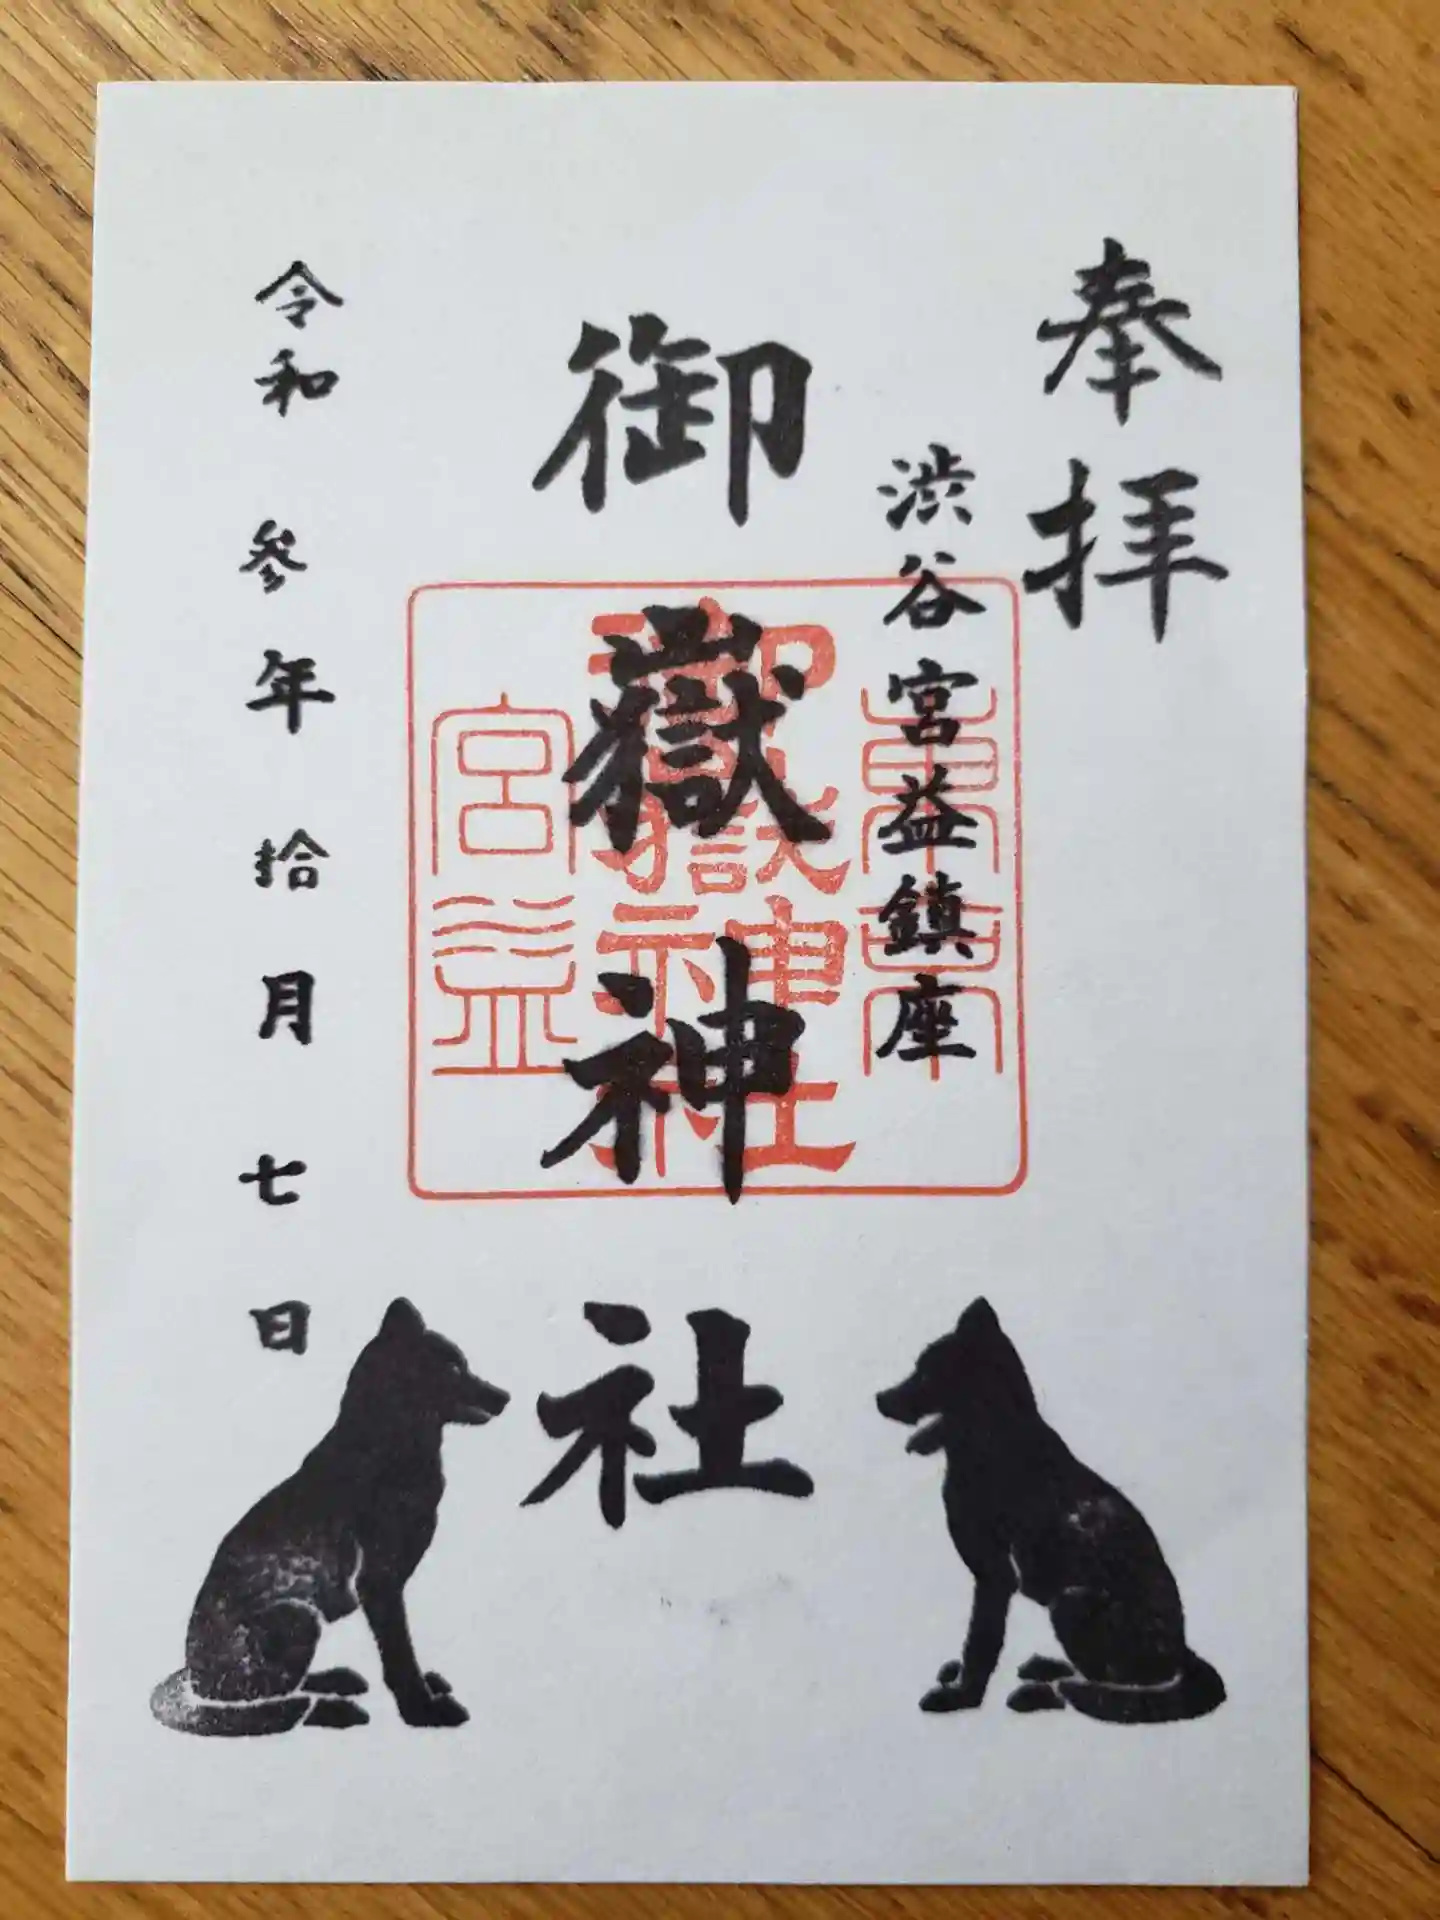 奉拝
渋谷宮益鎮座
御嶽神社
令和参年拾月七日
東京
御嶽神社
宮益